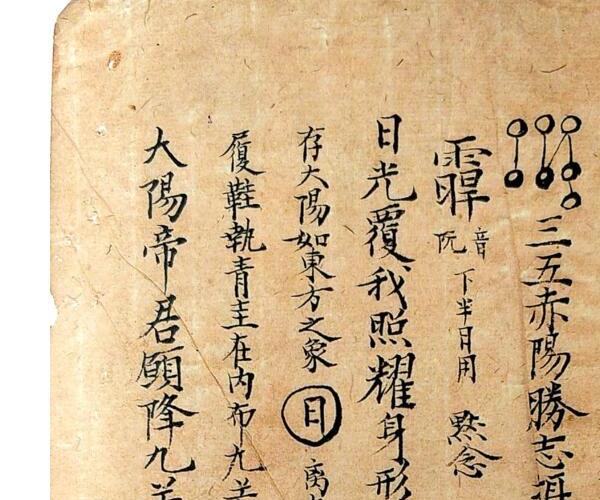 三五赤陽勝志
音阮 下半日用 㸃念
日光覆我照耀身形
存大陽如東方之象 日
履鞋執青圭在內布九芒
大陽帝君願降九芒